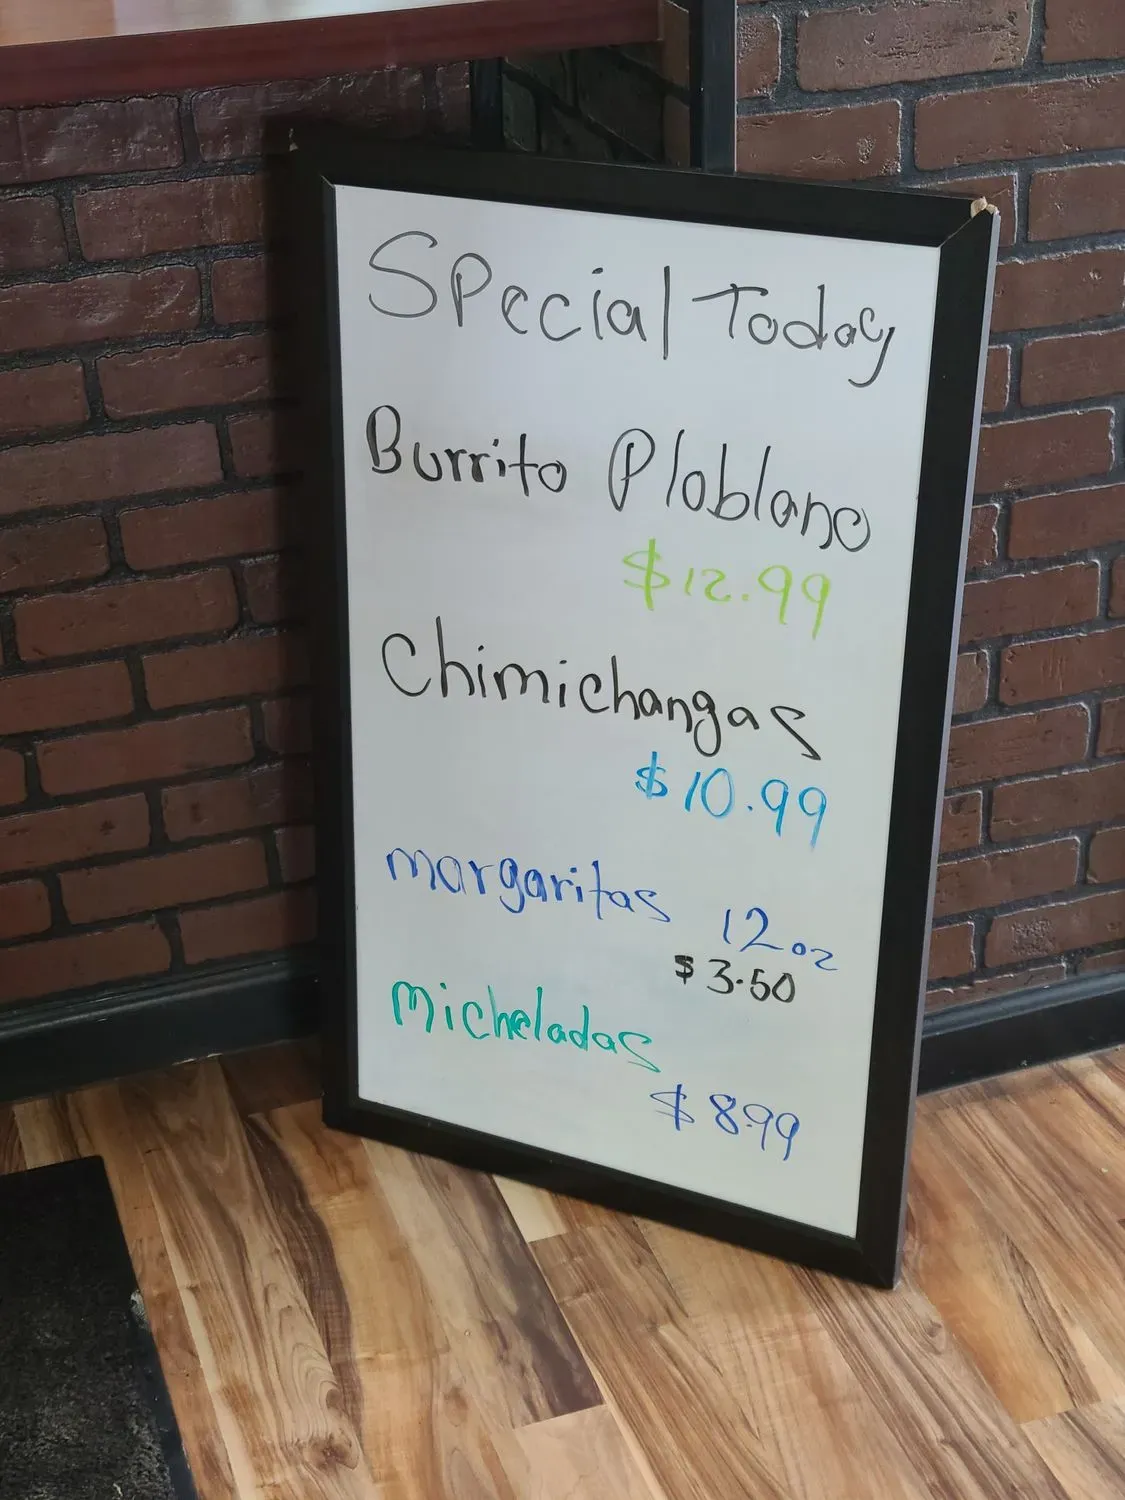 Special Today
Burrito Ploblano
$12.99
Chimichangas
$10.99
margaritas 12oz
$3.50
micheladas
$8.99